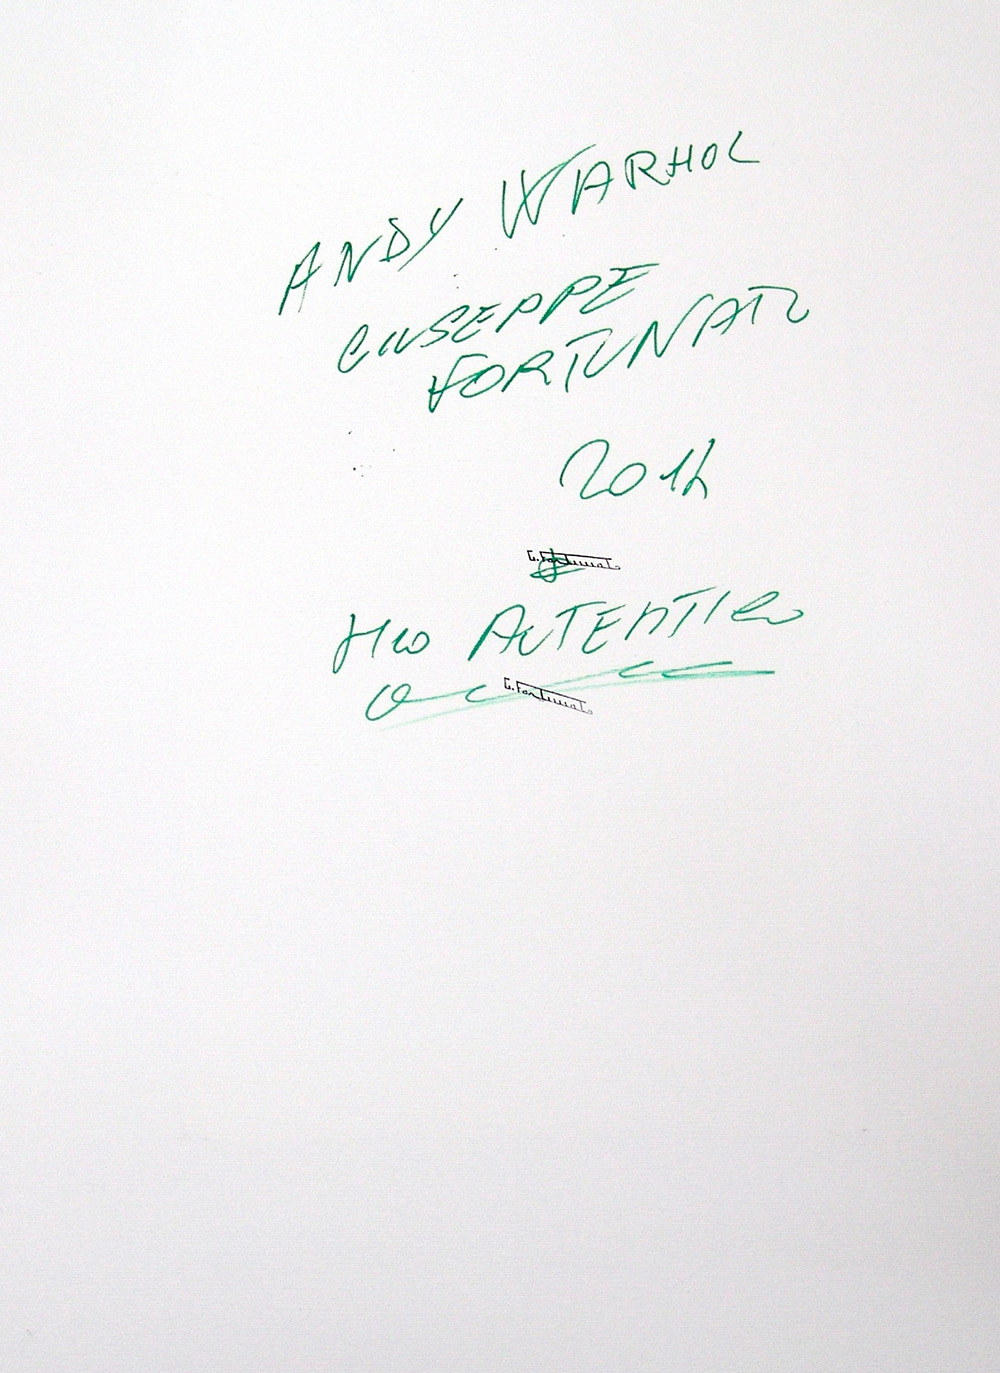 ANDY WARHOL
GIUSEPPE
FORTUNATO
G. Fortunato
AUTENTICO
G. Fortunato